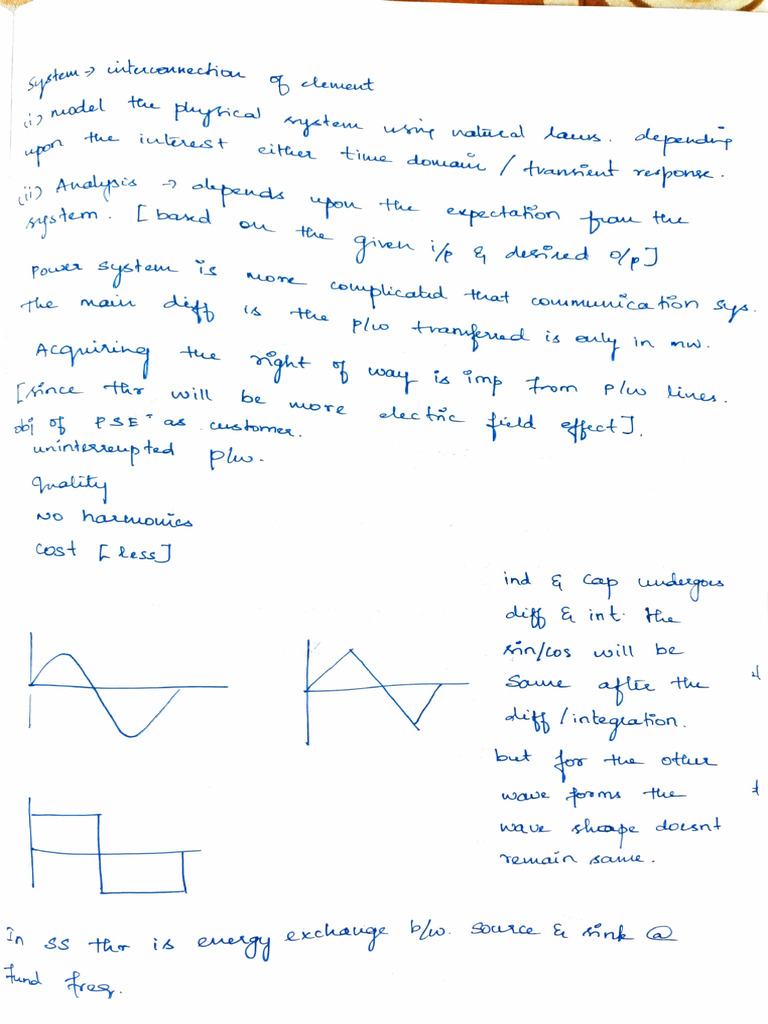 system → interconnection of element
(i) model the physical system using natural laws. depending
upon the interest either time domain / transient response.
(ii) Analysis → depends upon the expectation from the
system. [based on the given i/p & desired o/p]
Power system is more complicated that communication sys.
The main diff is the p/w transferred is only in mw.
Acquiring the right of way is imp from p/w lines.
[since thr will be more electric field effect].
obj of PSE as customer.
uninterrupted p/w.
Quality
No harmonics
cost [less]
ind & cap undergoes
diff & int. the
sin/cos will be
same after the
diff/integration.
but for the other
wave forms the
wave shape doesnt
remain same.
In SS thr is energy exchange b/w. source & sink @
Fund freq.